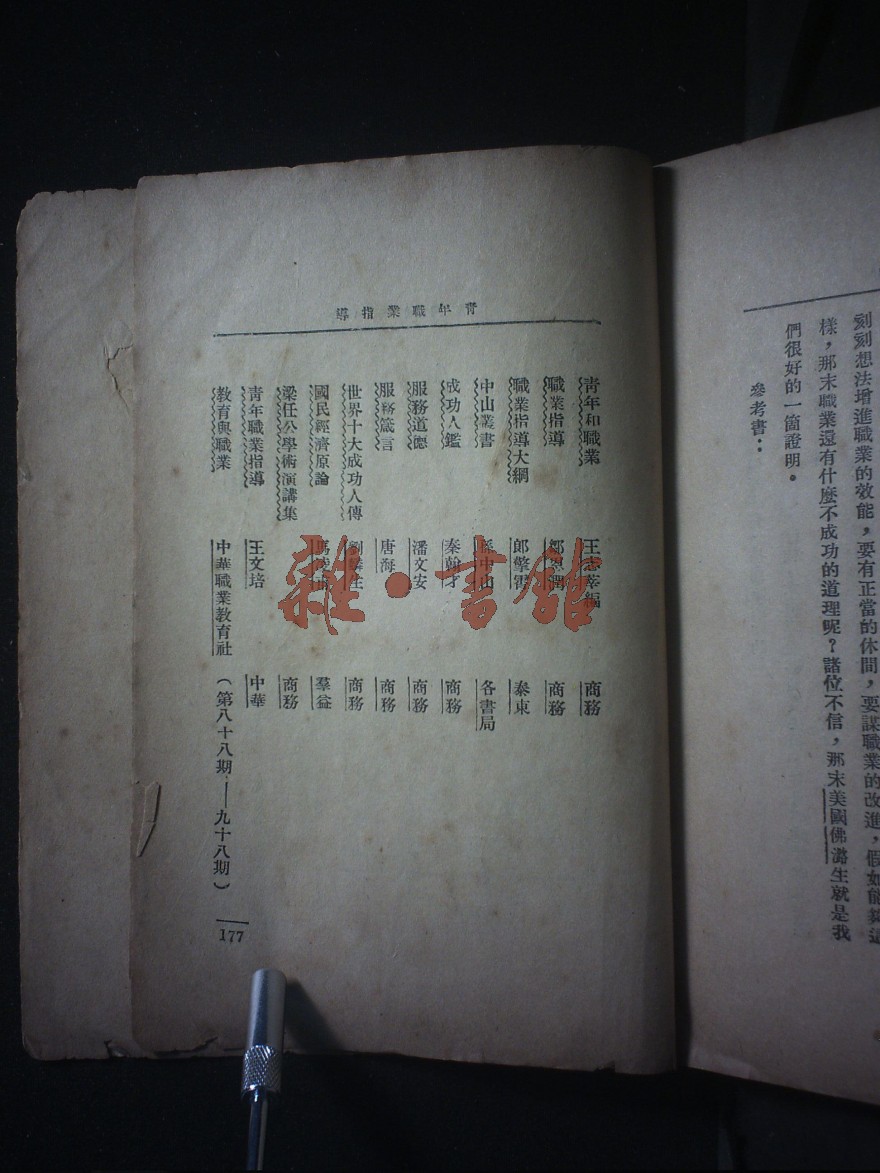 刻刻想法增進職業的效能，要有正當的休閒，要謀職業的改進，假如能夠這
樣，那末職業還有什麼不成功的道理呢？諸位不信，那末美國佛潞生就是我
們很好的一箇證明。
參考書：
青年職業指導
青年和職業 王志莘編 商務
職業指導 鄒恩潤 商務
職業指導大綱 郎擎霄 泰東
中山叢書 孫中山 各書局
成功人鑑 秦翰才 商務
服務道德 潘文安 商務
服務箴言 唐海 商務
世界十大成功人傳 劉麟生 商務
國民經濟原論 羣益
梁任公學術演講集 商務
青年職業指導 王文培 中華
教育與職業 中華職業教育社 （第八十八期——九十八期）
177
雜·書館